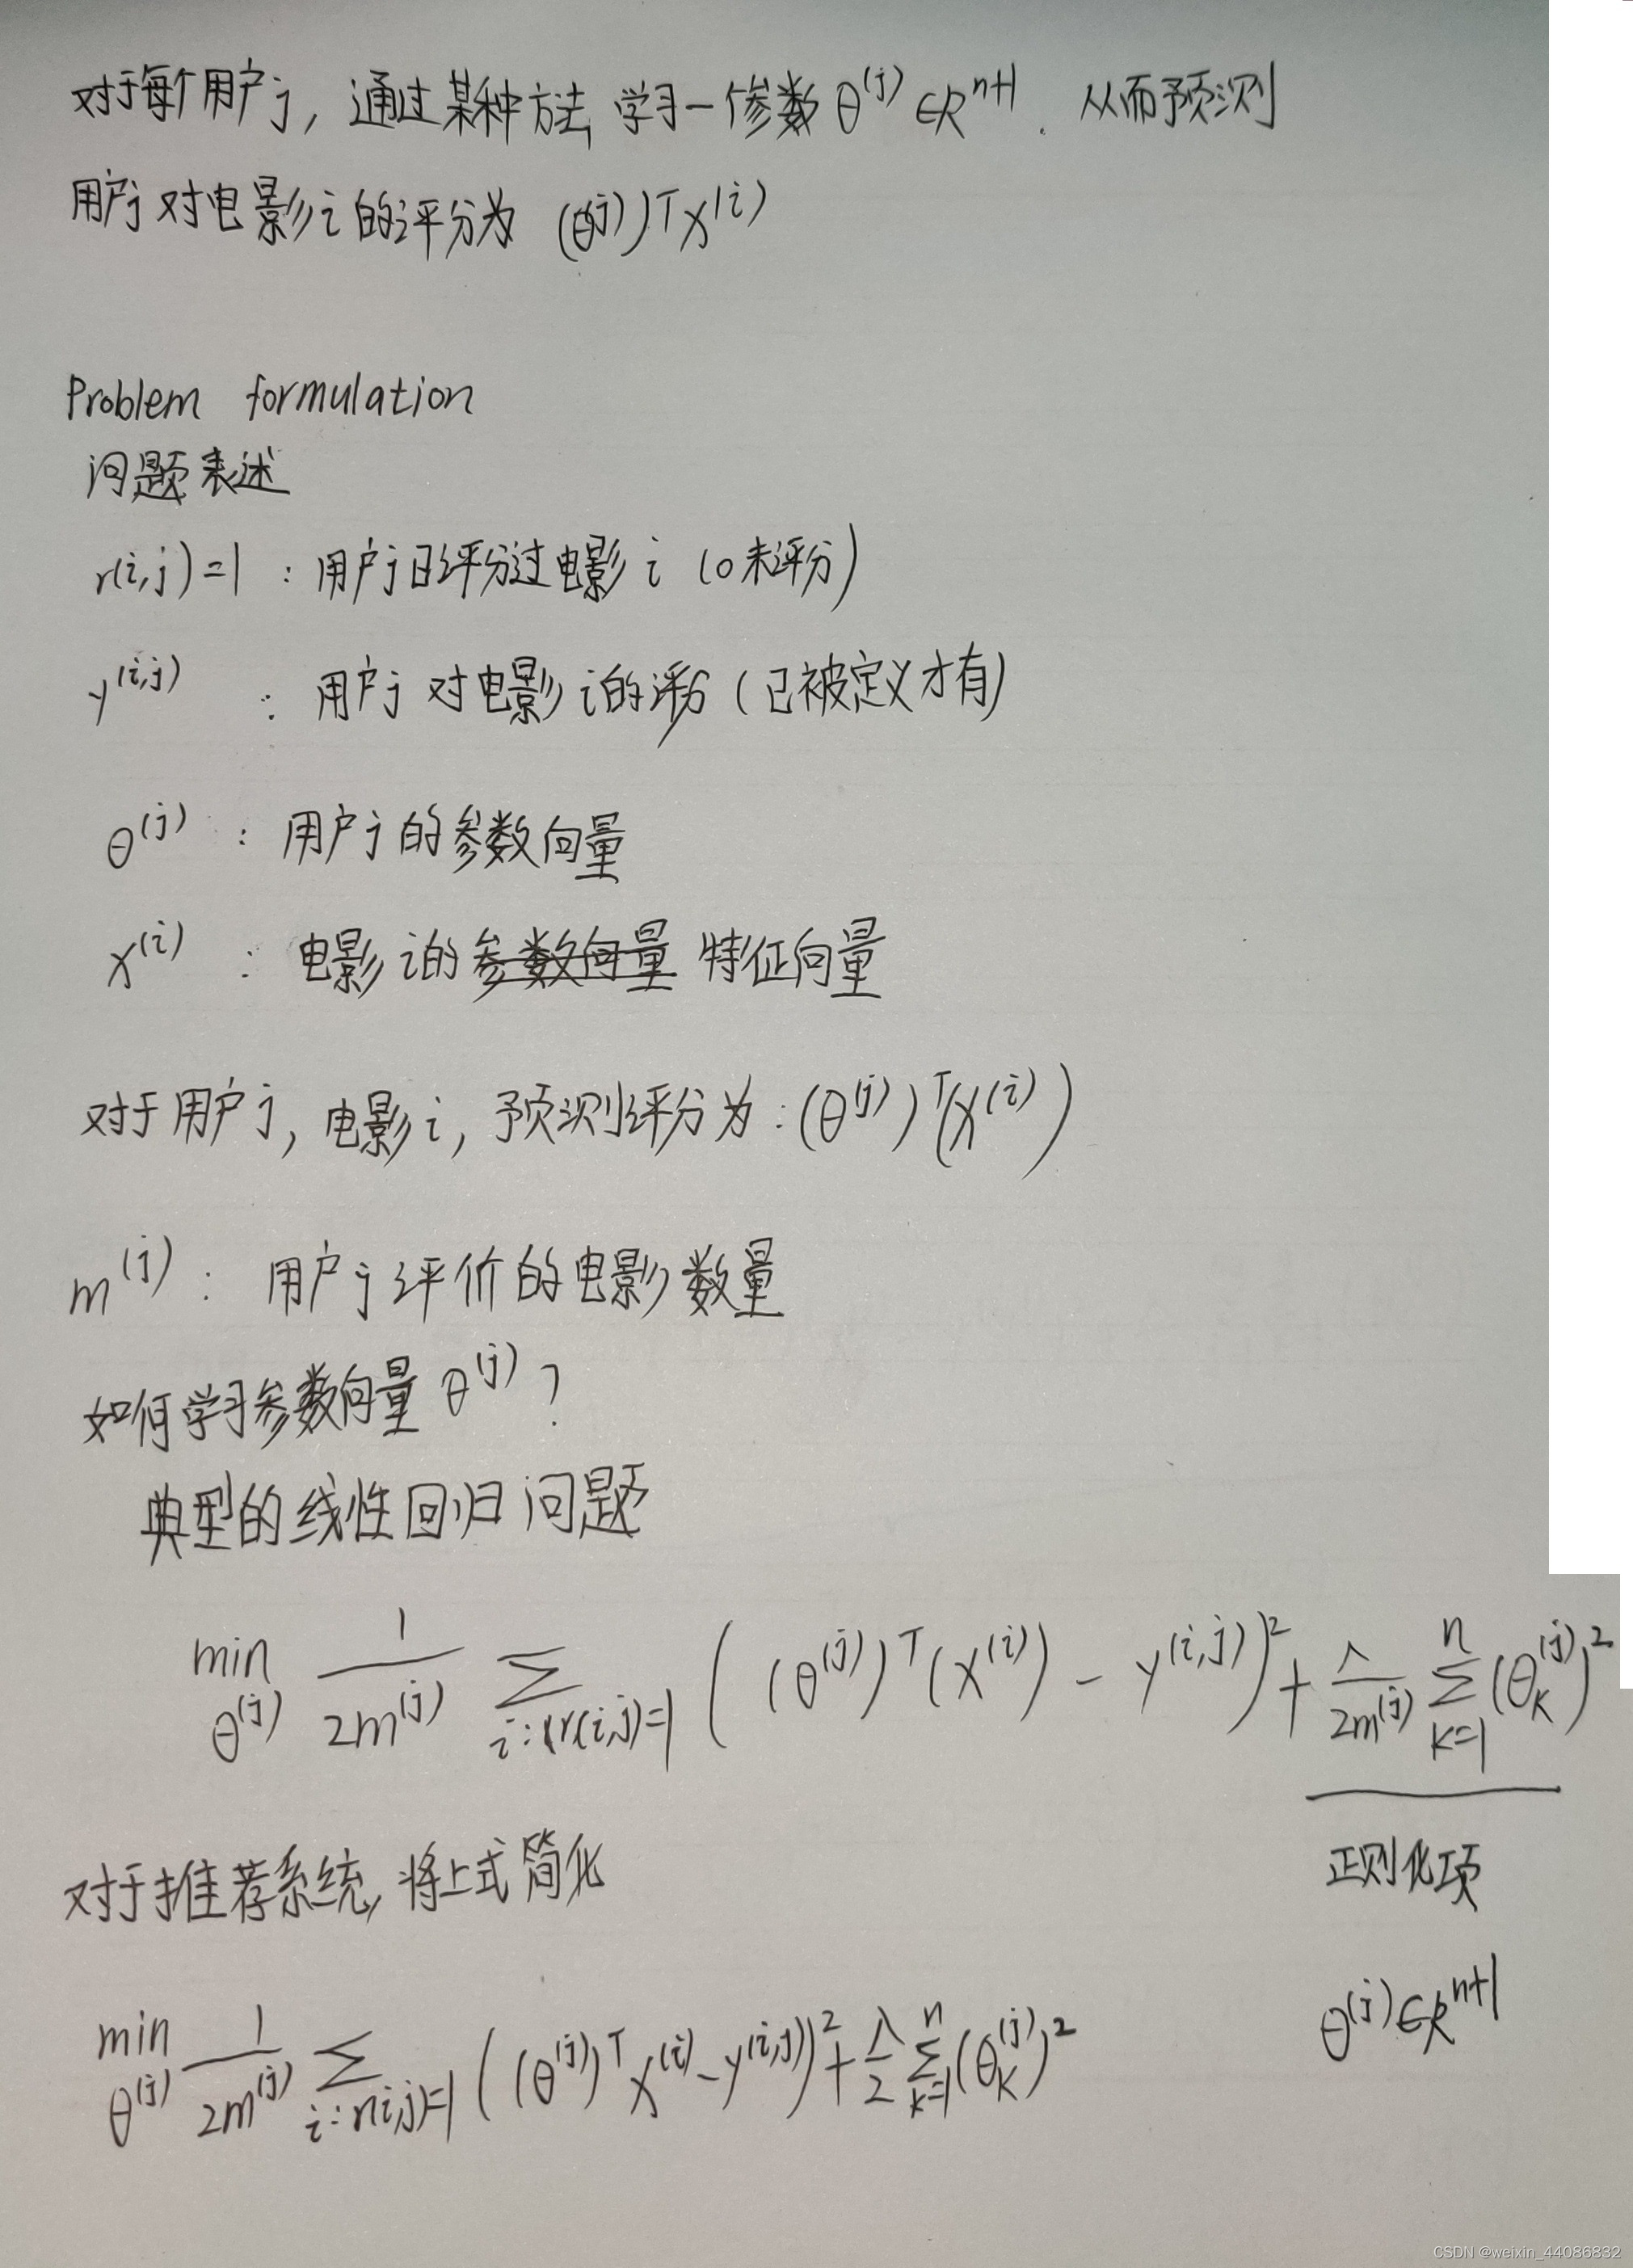 对于每个用户j，通过某种方法 学习一个参数 θ^(j) ∈R^n+1. 从而预测
用户j 对电影 i 的评分为 (θ^(j))^T X^(i)
Problem formulation
问题表述
r(i,j)=1 : 用户j 评分过电影 i (0未评分)
y^(i,j) : 用户j 对电影 i的评分 (已被定义才有)
θ^(j) : 用户j 的参数向量
X^(i) : 电影 i的 参数向量 特征向量
对于用户j, 电影i, 预测评分为: (θ^(j))^T(X^(i))
m^(j) : 用户j 评价的电影数量
如何学习参数向量 θ^(j) ?
典型的线性回归问题
min_θ^(j) 1/2m^(j) Σ_i:(r(i,j)=1 ( (θ^(j))^T (X^(i)) - y^(i,j))^2 + λ/2m^(j) Σ_k=1^n (θ_k^(j))^2
正则化项
对于推荐系统, 将上式简化
θ^(j) ∈R^n+1
min_θ^(j) 1/2m^(j) Σ_i:r(i,j)=1 ((θ^(j))^T X^(i) - y^(i,j))^2 + λ/2 Σ_k=1^n (θ_k^(j))^2
CSDN @weixin_44086832